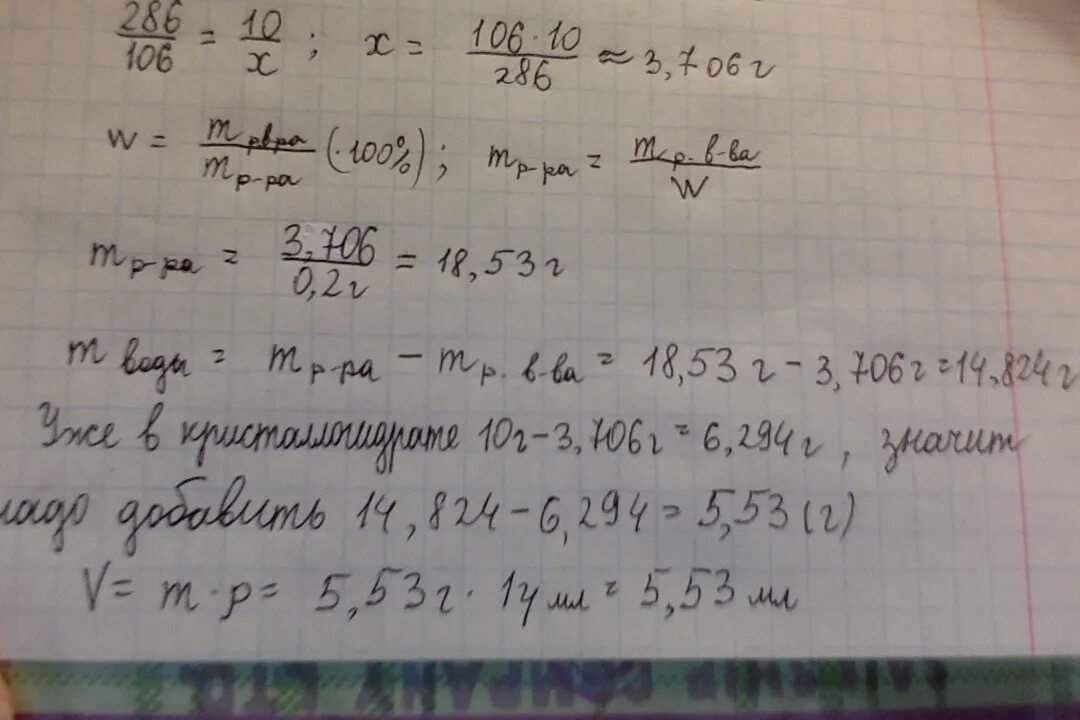 286/106 = 10/x ; x = 106·10/286 ≈ 3,706 г
W = m рвра/m р-ра (·100%); m р-ра = m р. в-ва/W
m р-ра = 3,706/0,2г = 18,53 г
m воды = m р-ра − m р. в-ва = 18,53 г − 3,706 г = 14,824 г
Уже в кристаллогидрате 10г − 3,706 г = 6,294 г , значит
надо добавить 14,824 − 6,294 = 5,53 (г)
V = m · ρ = 5,53 г · 1г/мл = 5,53 мл
COMPANY LTD